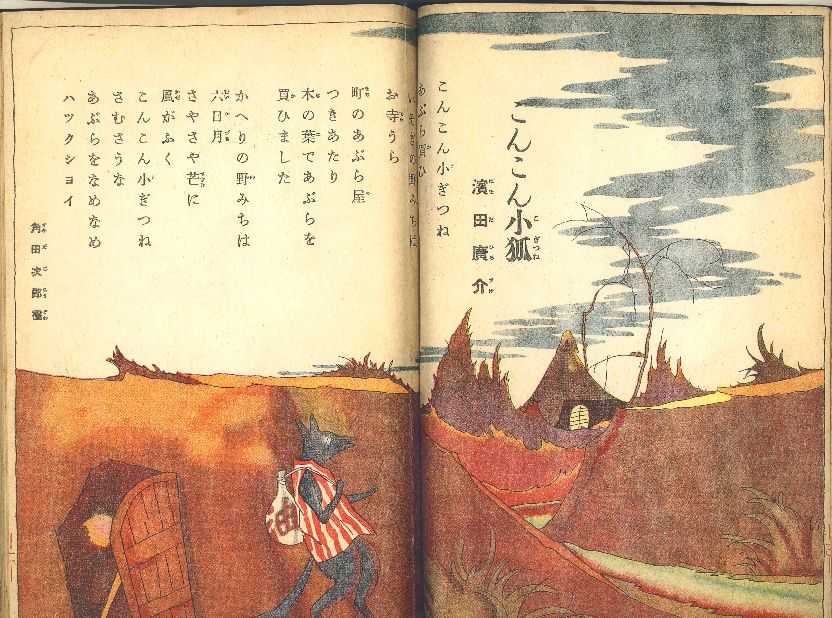 こんこん小狐
濱田廣介
こんこん小ぎつね
あぶら買ひ
いそぎの野みちは
お寺うら
町のあぶら屋
つきあたり
木の葉であぶらを
買ひました
かへりの野みちは
六日月
さやさや芒に
風がふく
こんこん小ぎつね
さむさうな
あぶらをなめなめ
ハツクシヨイ
角田次郎
油